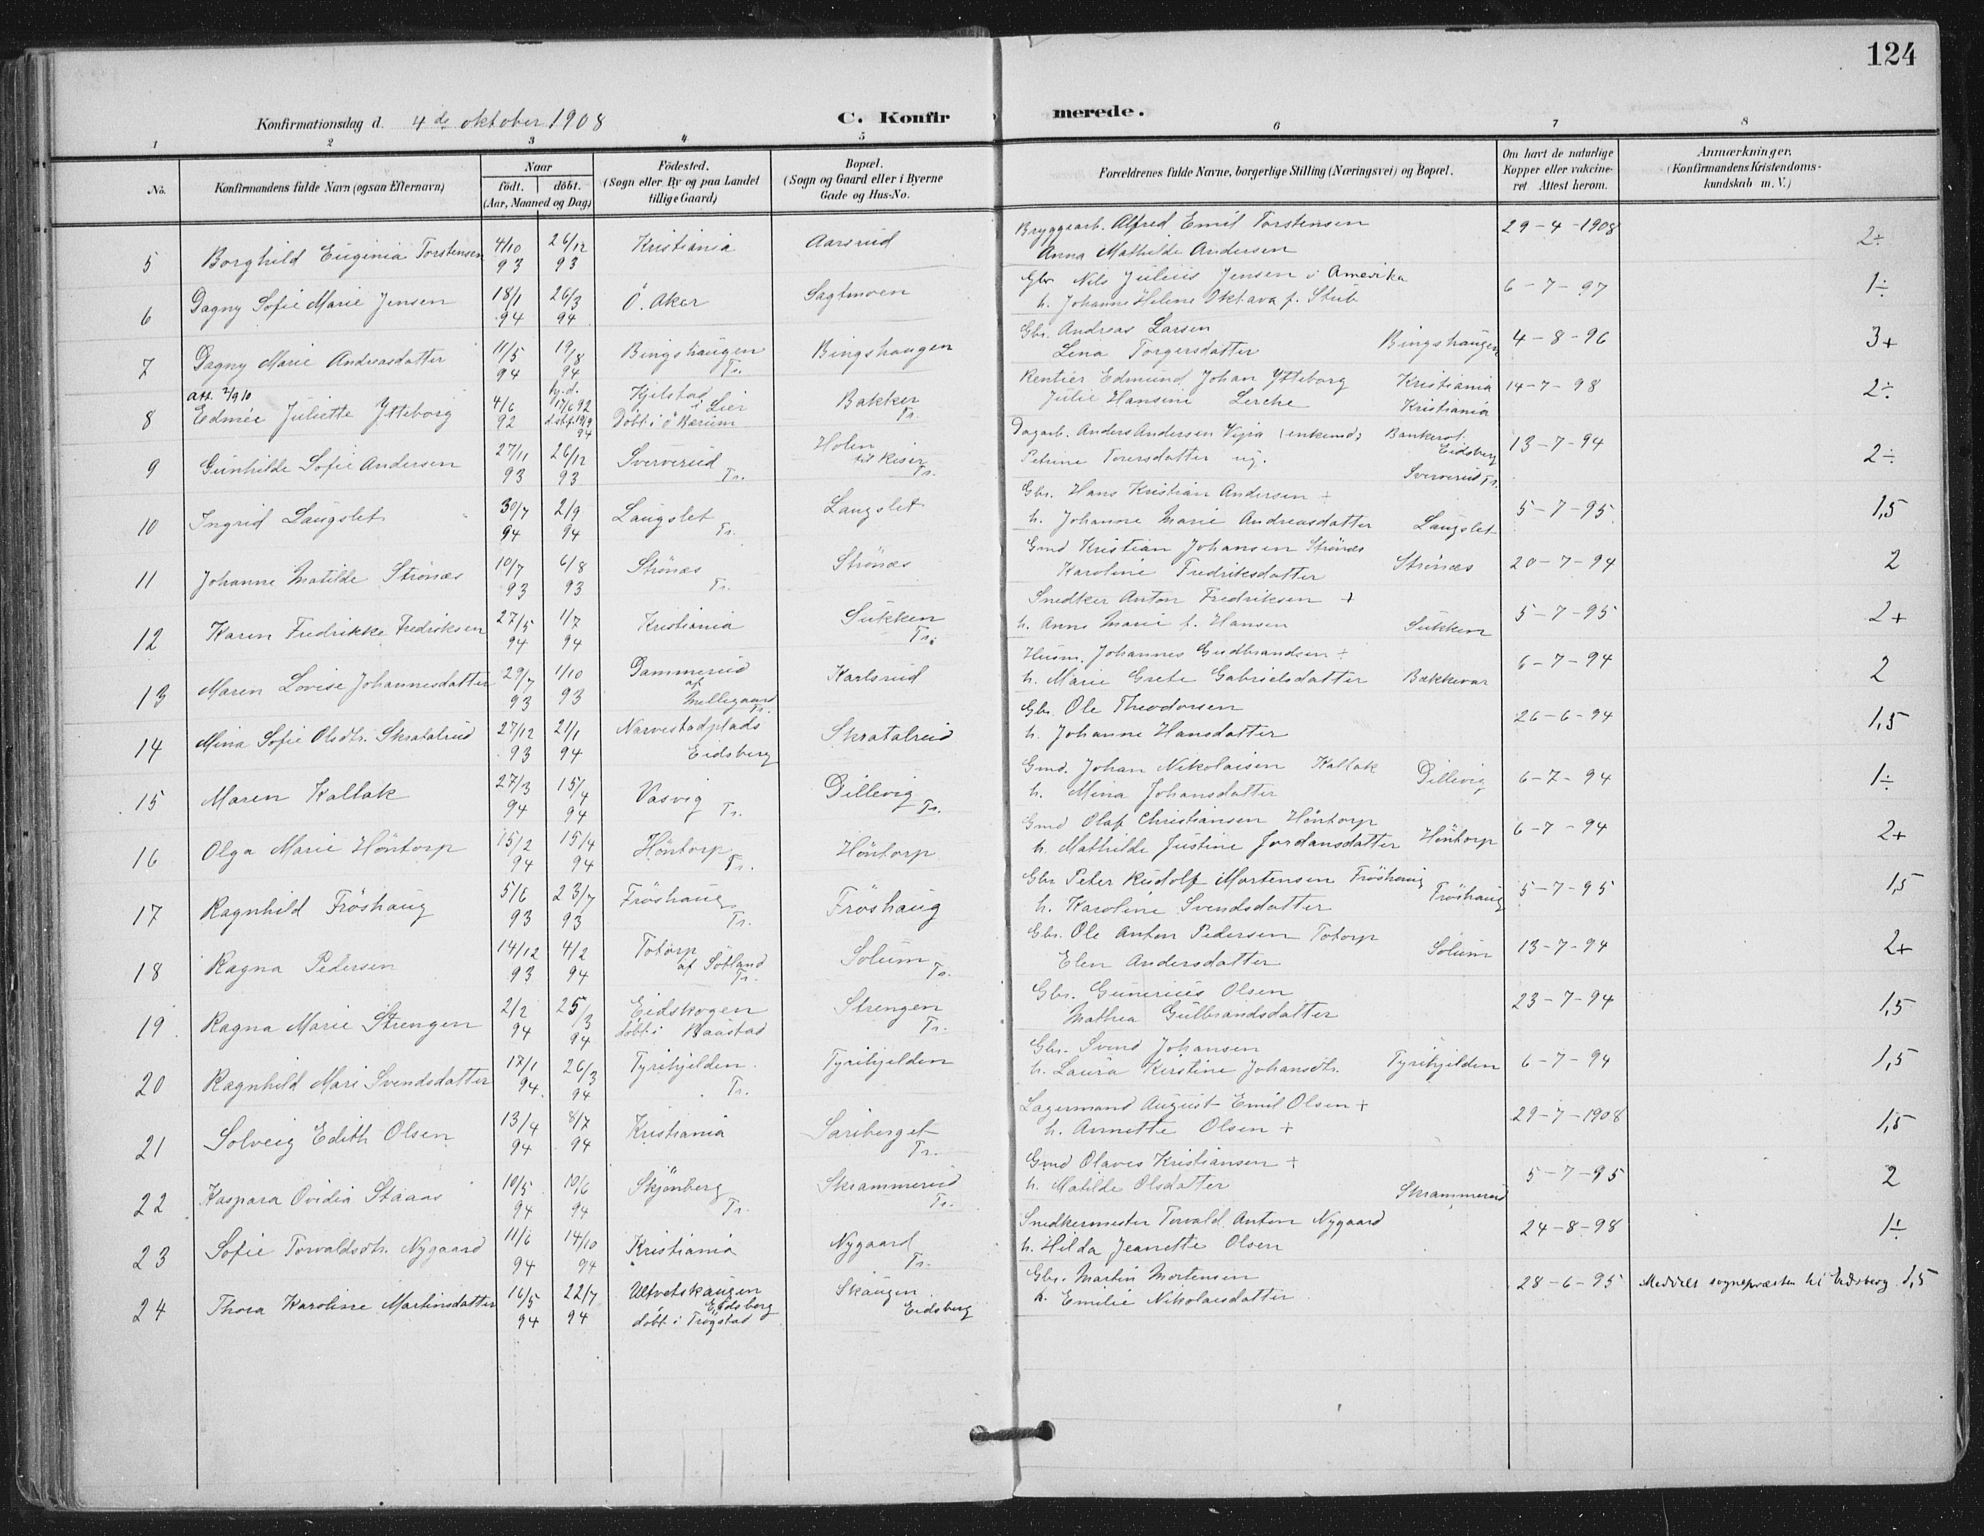 124
Konfirmationsdag d. 4de oktober 1908
C. Konfirmerede.
1 2 3 4 5 6 7 8
No. Konfirmandens fulde Navn (ogsaa Efternavn) Naar født. døbt. (Aar, Maaned og Dag) Fødested. (Sogn eller By og paa Landet tillige Gaard) Bopæl. (Sogn og Gaard eller i Byerne Gade og Hus-No. Forældrenes fulde Navne, borgerlige Stilling (Næringsvei) og Bopæl. Om havt de naturlige Kopper eller vaccineret Attest herom. Anmærkninger. (Konfirmandens Kristendomskundskab m. V.)
5 Borghild Euginia Torstensen 4/10 93 26/12 93 Kristiania Aarsrud Bryggearb. Alfred Emil Torstensen Anna Mathilde Andersen 29-4-1908 2÷
6 Dagny Sofie Marie Jensen 18/1 94 26/3 94 Ö. Aker Sagtmoen Gbr. Nils Julius Jensen i Amerika h. Johanne Helene Oktava f. Stub 6-7-97 1÷
7 Dagny Marie Andreasdatter 11/5 94 19/8 94 Bingshaugen Tr. Bingshaugen Gbr. Andreas Larsen Lena Torgersdatter Bingshaugen 4-8-96 3+
8 att 2/9 10 Edmée Juliette Ytteborg 4/6 92 hj.d. 17/6 92 Hjelstad i Lier Döbt i Ö Bærum Bakker Tr. Rentier Edmund Johan Ytteborg Kristiania Julie Hansine Lerche Kristiania 14-7-98 2÷
9 Gunhilde Sofie Andersen 27/11 93 26/12 93 Sververud Tr. Holen Tr. Dagarb. Anders Andersen (enkemd) Eidsberg Petrine Toresdatter ug. Sververud Tr. 13-7-94 2÷
10 Ingrid Laugslet 30/7 94 2/9 94 Laugslet Tr. Laugslet Gbr. Hans Kristian Andersen + h. Johanne Marie Andreasdatter Laugslet 5-7-95 1,5
11 Johanne Matilde Strönæs 10/7 93 6/8 93 Strönæs Tr. Strönæs Gmd Kristian Johansen Strönæs Karoline Fredriksdatter Strönæs 20-7-94 2
12 Karen Fredrikke Fredriksen 27/5 94 1/7 94 Kristiania Sukken Tr. Snedker Anton Fredriksen + h. Anne Marie f. Hansen Sukken 5-7-95 2+
13 Maren Lovise Johannesdatter 29/7 93 1/10 93 Dammerud af Millegaard Tr. Karlsrud Husm. Johannes Gudbrandsen + h. Marie Grete Gabrielsdatter Bækkevar 6-7-94 2
14 Mina Sofie Olsdtr. Skratalrud 27/12 93 21/1 94 Narvestadplads Eidsberg Skratalrud Gbr. Ole Theodorsen h. Johanne Hansdatter 26-6-94 1,5
15 Maren Kallak 27/3 94 15/4 94 Vasvig Tr. Dillevig Tr. Gmd. Johan Nikolaisen Kallak Dillevig h. Mina Johansdatter 6-7-94 1÷
16 Olga Marie Höntorp 15/2 94 15/4 94 Höntorp Tr. Höntorp Gmd Olaf Christiansen Höntorp h. Mathilde Justine Jordansdatter Höntorp 6-7-94 2+
17 Ragnhild Fröshaug 5/6 93 23/7 93 Fröshaug Tr. Fröshaug Gbr Peter Rudolf Mortensen Fröshaug h. Karoline Svendsdatter Fröshaug 5-7-95 1,5
18 Ragna Pedersen 14/12 93 4/2 94 Totorp af Sötland Tr. Solum Tr. Gbr. Ole Anton Pedersen Totorp Elen Andersdatter Solum 13-7-94 2+
19 Ragna Marie Strengen 2/2 94 25/3 94 Eidskogen döbt i Baastad Strengen Tr. Gbr. Gunerius Olsen Mathea Gulbrandsdatter 23-7-94 1,5
20 Ragnhild Mari Svendsdatter 17/1 94 26/3 94 Tyrihjelden Tr. Tyrihjelden Gbr. Svend Johansen h. Laura Kirstine Johansdtr. Tyrihjelden 6-7-94 1,5
21 Solveig Edith Olsen 13/4 94 8/7 94 Kristiania Sariberget Tr. Lagermand August Emil Olsen + h. Annette Olsen + 29-7-1908 1,5
22 Kaspara Ovidia Staaas 10/5 94 10/6 94 Skjönberg Tr. Skrammerud Tr. Gmd Olaves Kristiansen + h. Matilde Olsdatter Skrammerud 5-7-95 2
23 Sofie Torvaldsdtr. Nygaard 11/6 94 14/10 94 Kristiania Nygaard Tr. Snedkermester Torvald Anton Nygaard h. Hilda Jeanette Olsen 24-8-98 1÷
24 Thora Karoline Martinsdatter 16/5 94 22/7 94 Eidsberg döbt i Trøgstad Skaugen Eidsberg Gbr. Martin Mortensen h. Emilie Nikolaisdatter 28-6-95 Meddelt sognepræsten til Eidsberg 1,5